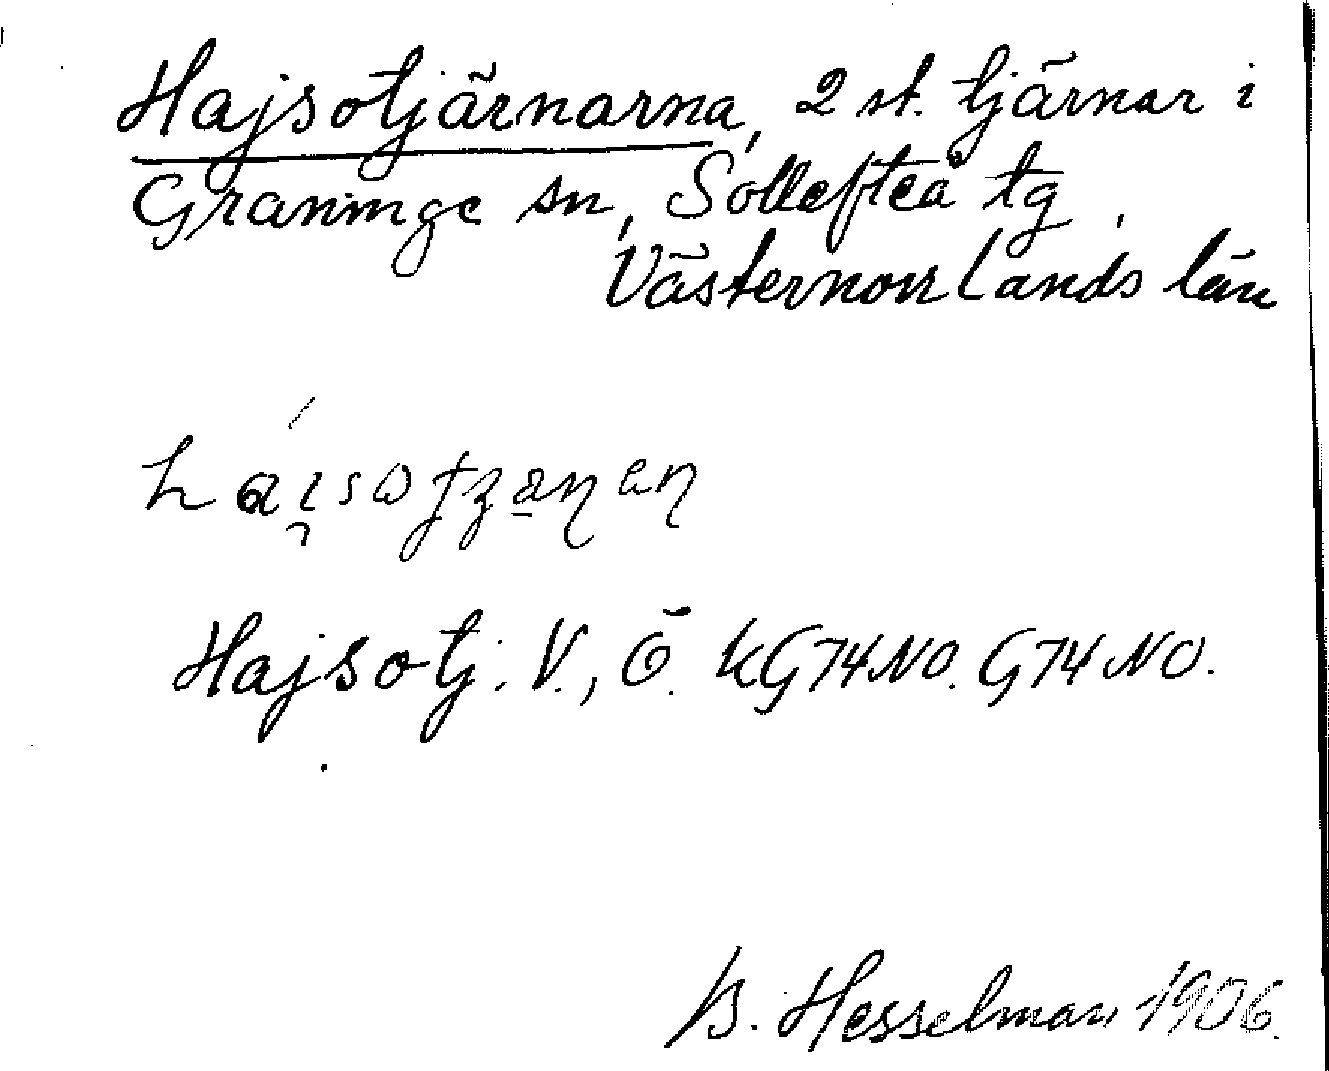 Hajsotjärnarna, 2 st. tjärnar i
Graninge sn, Sollefteå tg,
Västernorrlands län
Hajsotj. V., Ö. KG74NO. G74NO.
B. Hesselman 1906.